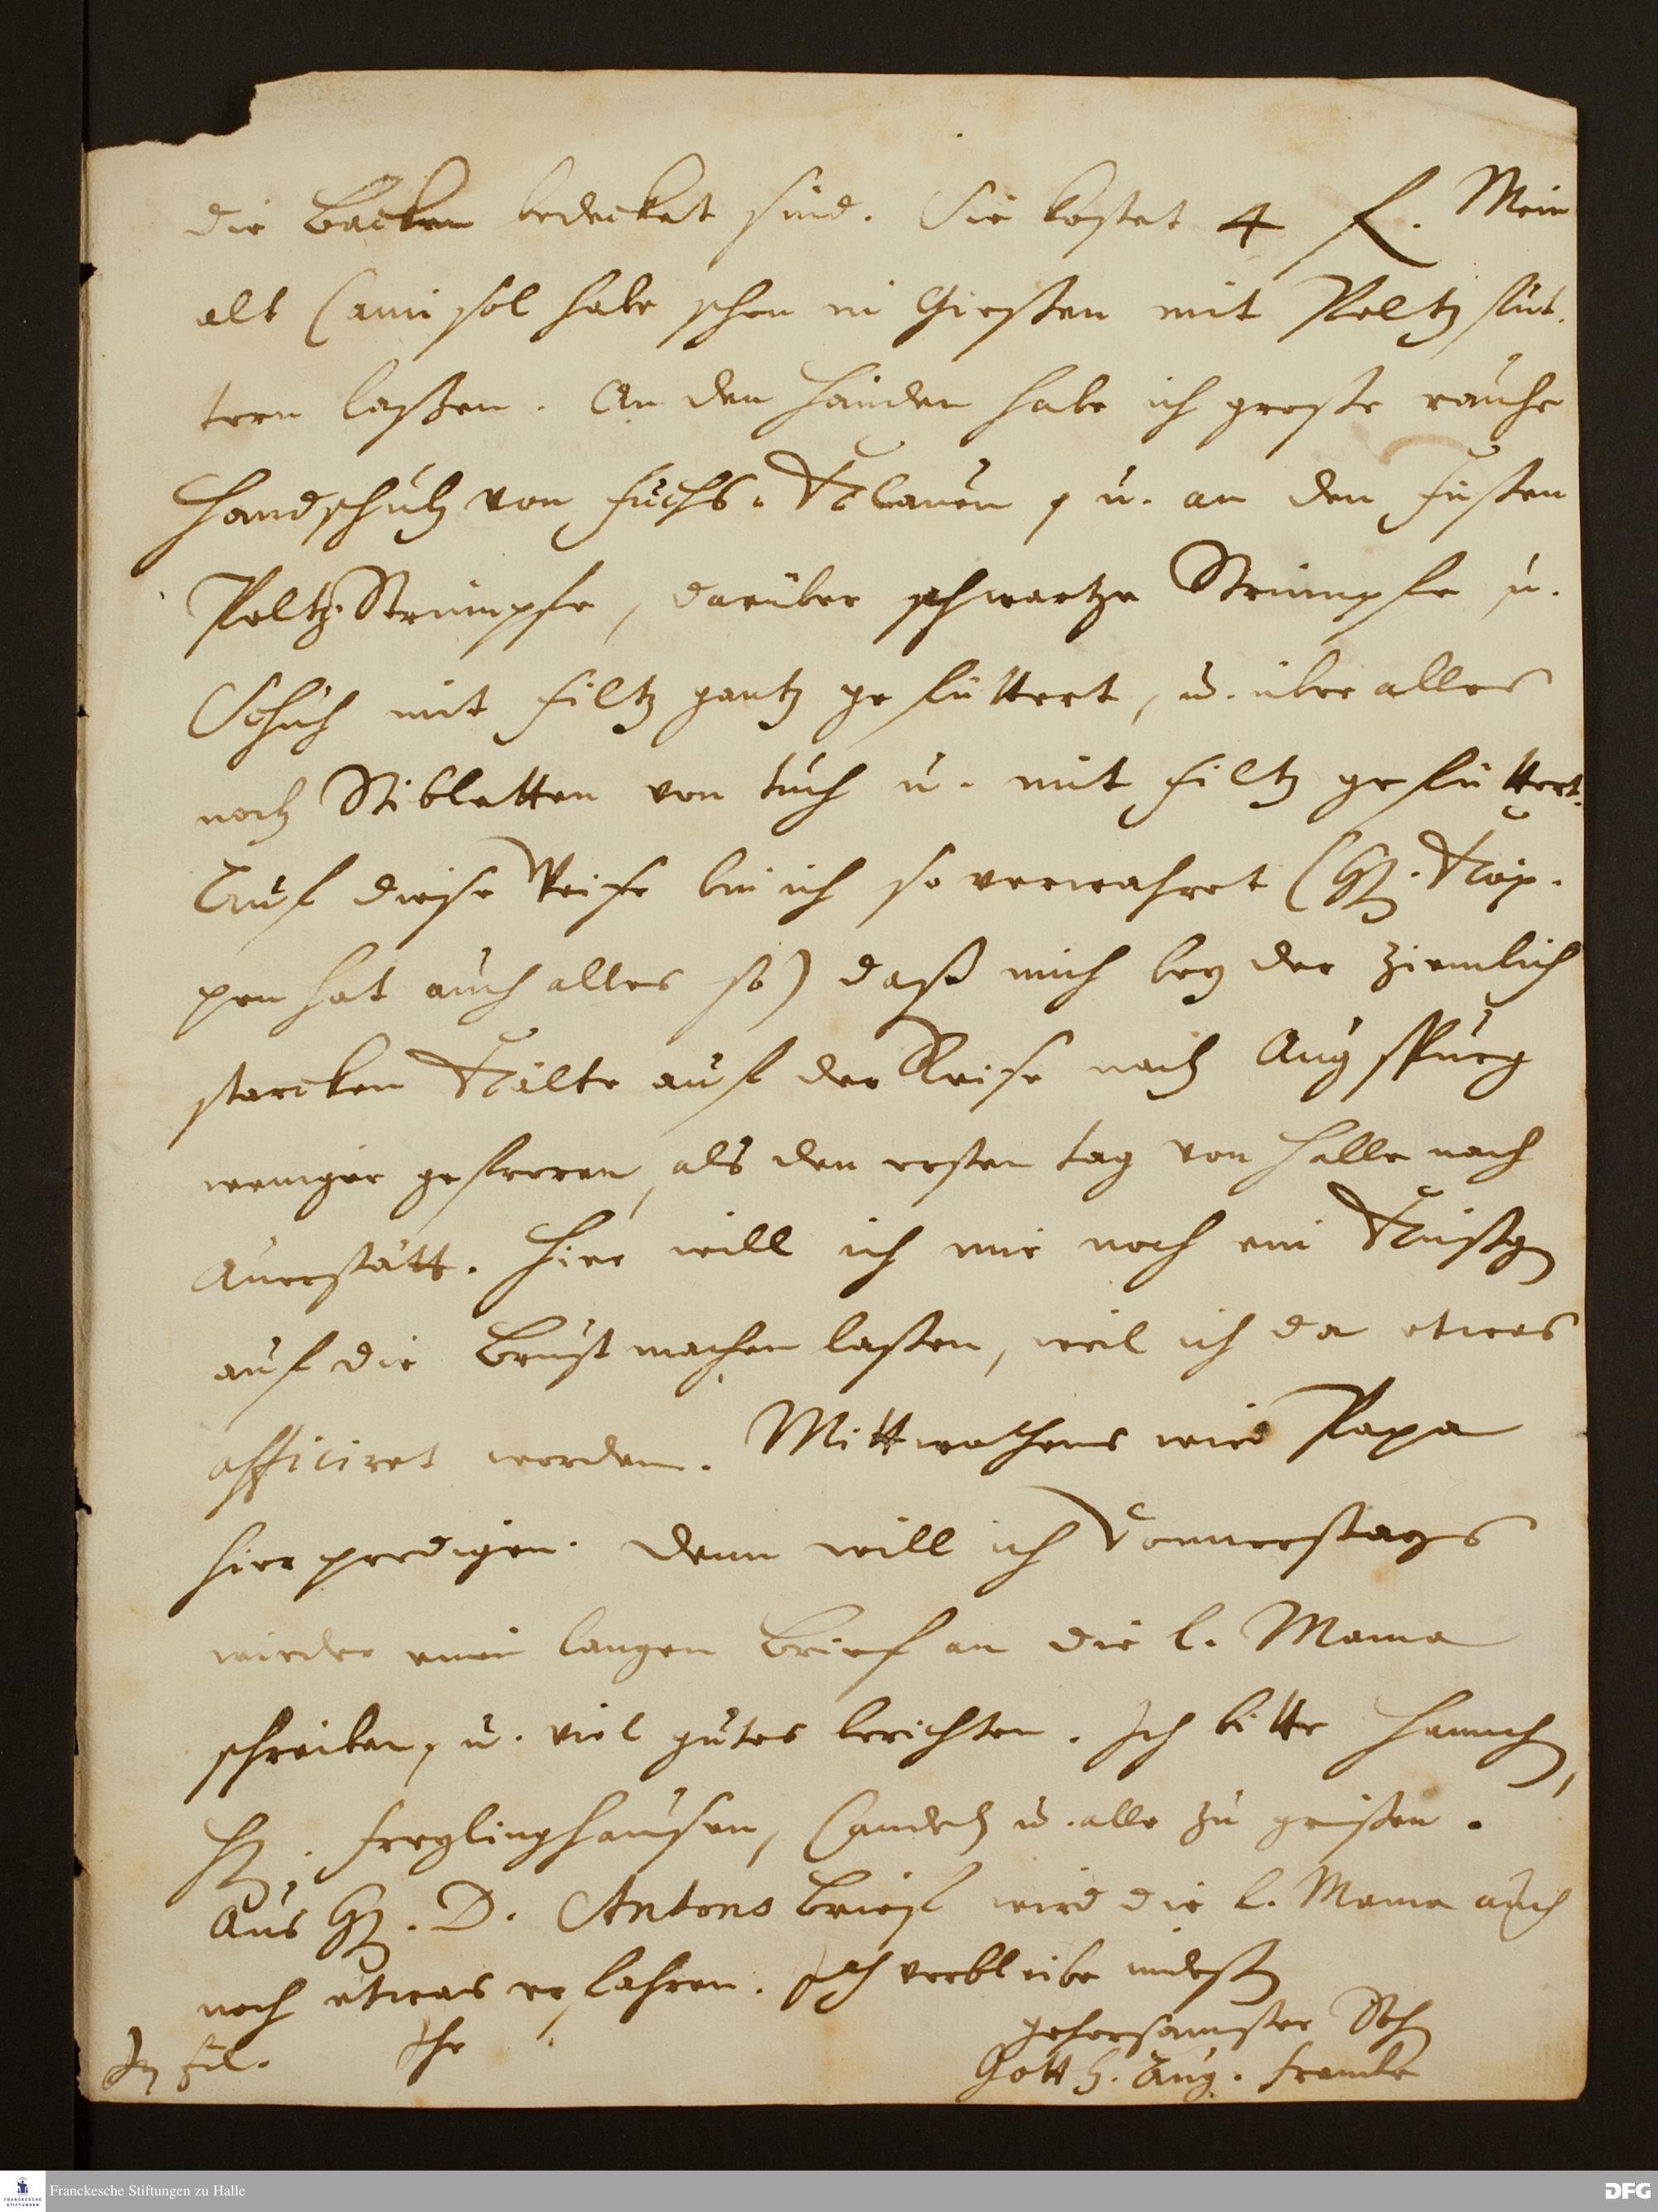 die Backen bedecket sind. Sie kostet 4 f. Mein
alt Camisol habe schon in Gießen mit Peltz füt-
tern laßen. An den Händen habe ich große rauhe
Handschuh von Fuchs-Klauen, u. an den Füßen
Peltz-Strümpfe, darüber schwartze Strümpfe u.
Schuh mit Filtz gantz gefüttert, u. über alles
noch Stibletten von Tuch u. mit Filtz gefüttert.
Auf diese Weise bin ich so verwahret (H. Köp-
pen hat auch alles so) daß mich bey der ziemlich
starcken Kälte auf der Reise nach Augspurg
weniger gefroren, als den ersten Tag von Halle nach
Auerstätt. Hier will ich mir noch ein Küßgen
auf die Brust machen laßen, weil ich da etwas
afficiret worden. Mittwochens wird Papa
hier predigen. Denn will ich Donnerstags
wieder einen langen Brief an die l. Mama
schreiben, u. viel gutes berichten. Ich bitte
H. Freylinghausen, u. alle zu grüßen.
Aus H. D. Antons Brief wird die l. Mama auch
noch etwas erfahren. Ich verbleibe indeß
Ihr gehorsamster Sohn
Gotth. Aug. Francke
Franckesche Stiftungen zu Halle
FRANCKESCHE STIFTUNGEN
DFG